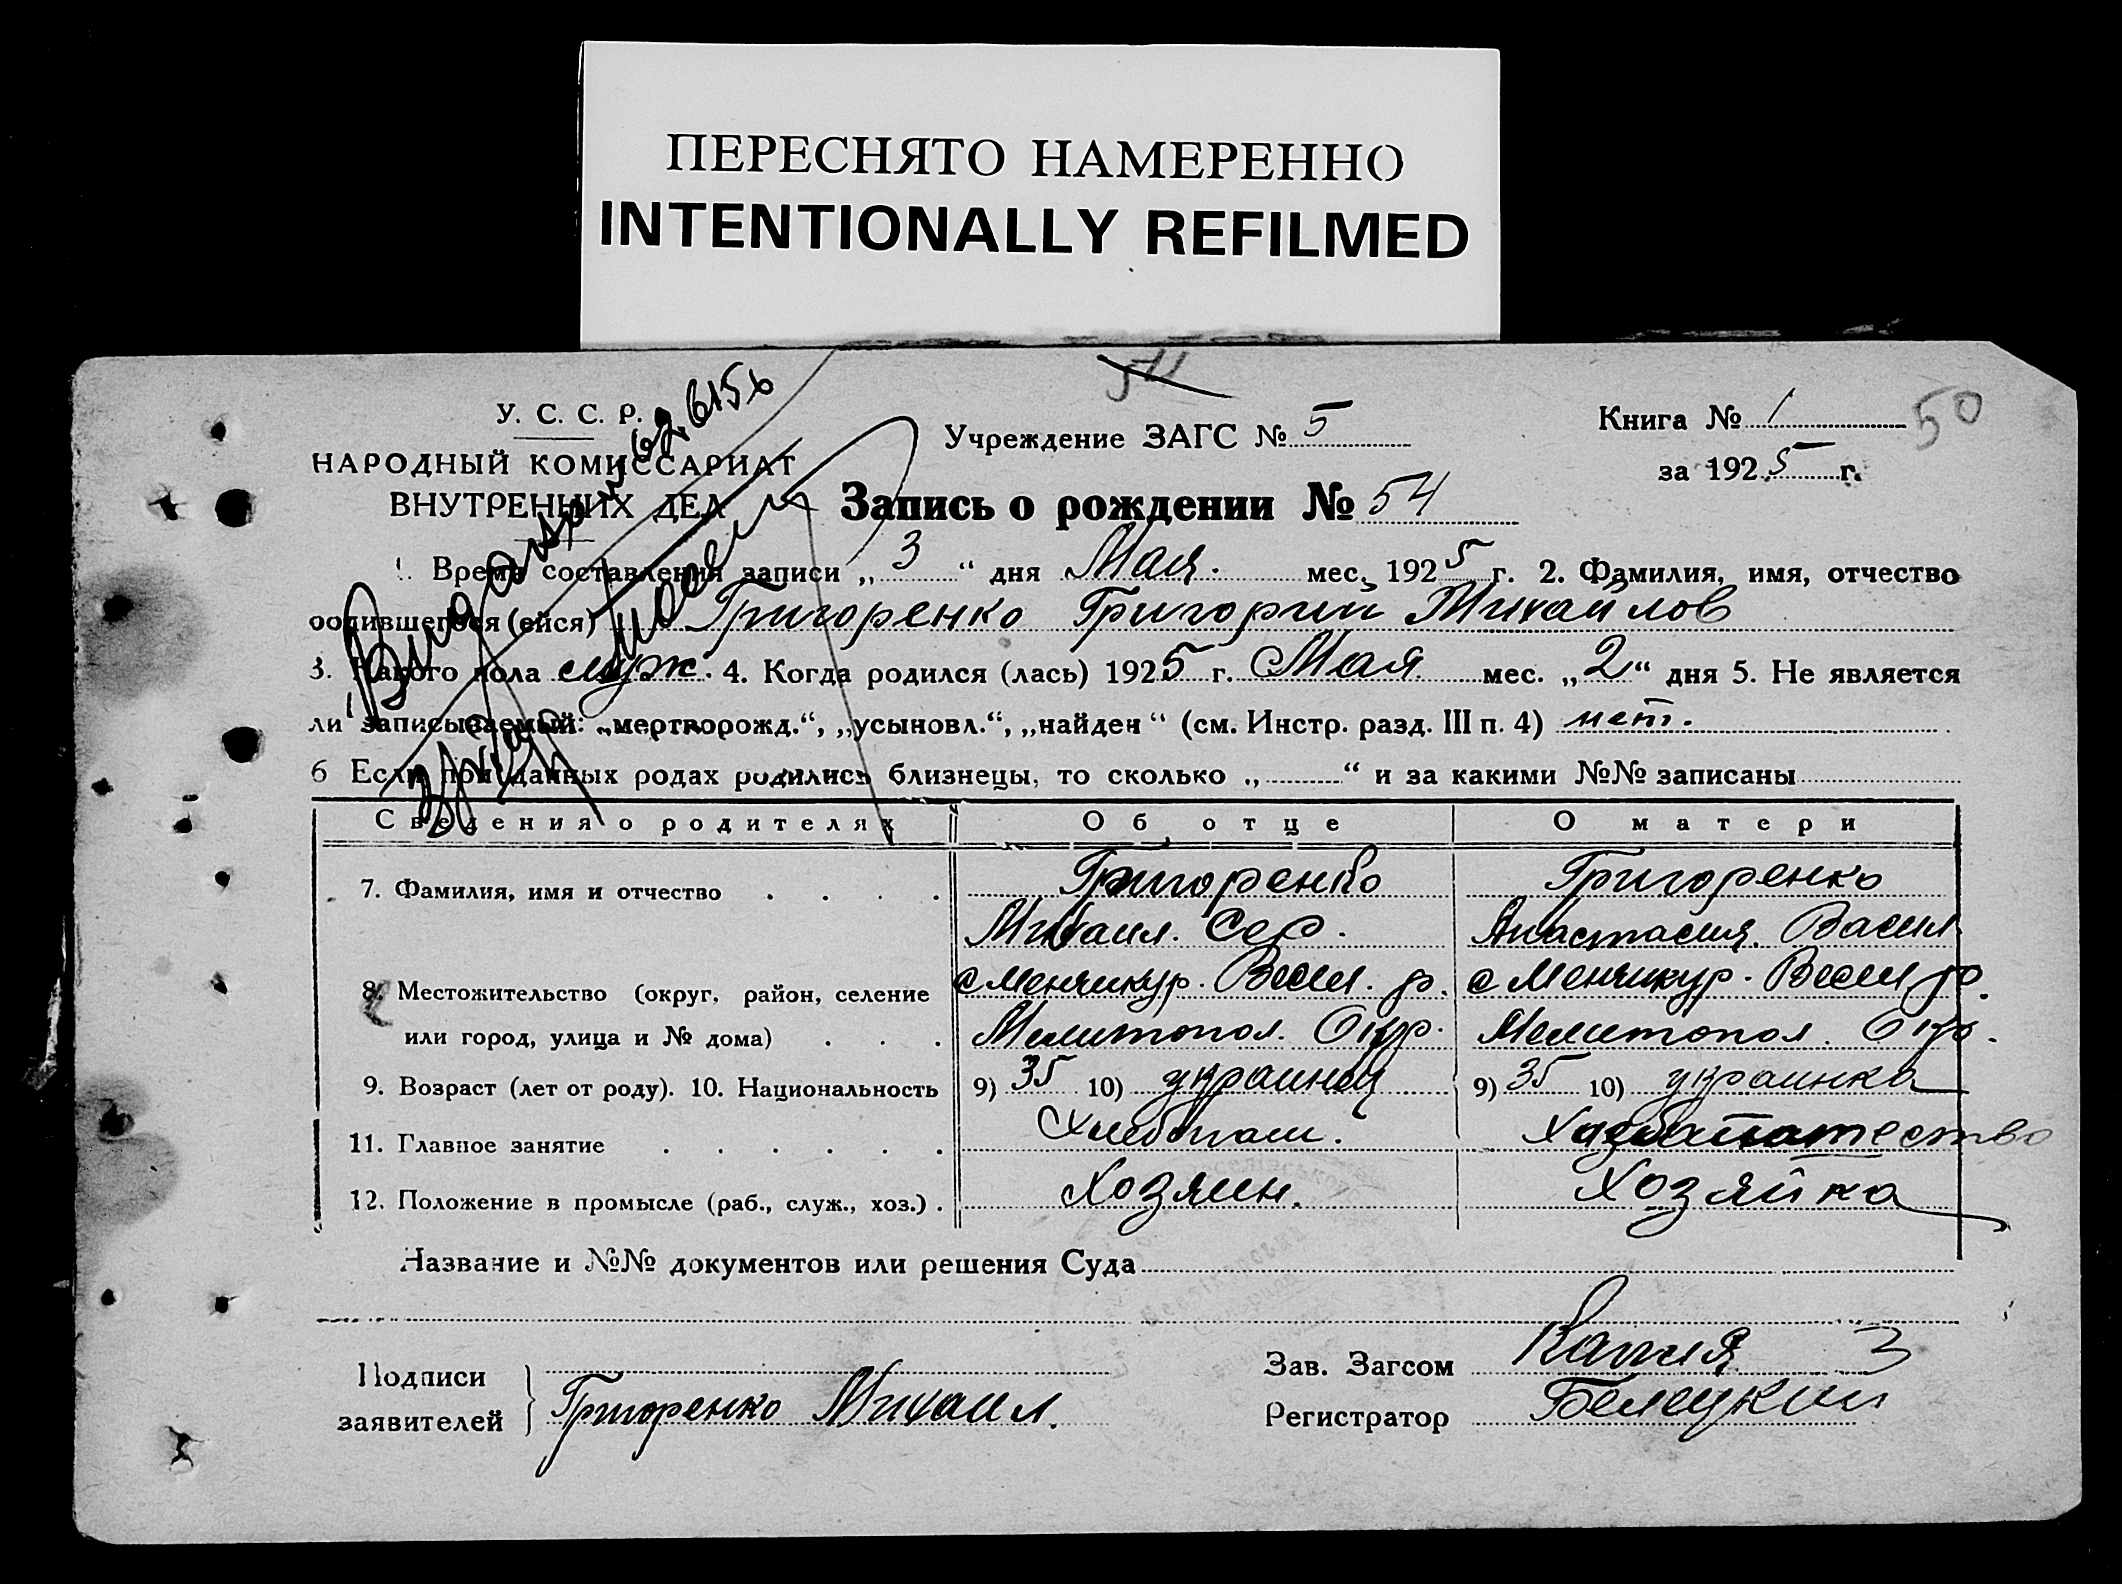 ПЕРЕСНЯТО НАМЕРЕННО
INTENTIONALLY REFILMED
54
У. С. С. Р.
НАРОДНЫЙ КОМИССАРИАТ
ВНУТРЕННИХ ДЕЛ
Учреждение ЗАГС № 5
Книга № 1
50
за 1925 г.
Запись о рождении № 54
1. Время составления записи „ 3 “ дня Мая. мес. 1925 г. 2. Фамилия, имя, отчество
родившегося (ейся) Григоренко Григорий Михайлов
3. Какого пола муж. 4. Когда родился (лась) 1925 г. Мая мес. „ 2 “ дня 5. Не является
ли записываемый: „мертворожд.“, „усыновл.“, „найден“ (см. Инстр. разд. III п. 4) нет.
6 Если при данных родах родились близнецы, то сколько „ “ и за какими №№ записаны
Сведения о родителях Об отце О матери
7. Фамилия, имя и отчество Григоренко Григоренко
Михаил. Сер. Анастасия Васил
8. Местожительство (округ, район, селение с Менчикур. Весел. р. с Менчикур. Весел р.
или город, улица и № дома) Мелитопол. Окр. Мелитопол. Окр.
9. Возраст (лет от роду). 10. Национальность 9) 35 10) украинец 9) 35 10) украинка
11. Главное занятие Хлебопаш. Хлебопашество
12. Положение в промысле (раб., служ., хоз.) Хозяин. Хозяйка
Название и №№ документов или решения Суда
Подписи
заявителей Григоренко Михаил.
Зав. Загсом
Регистратор Белецкий